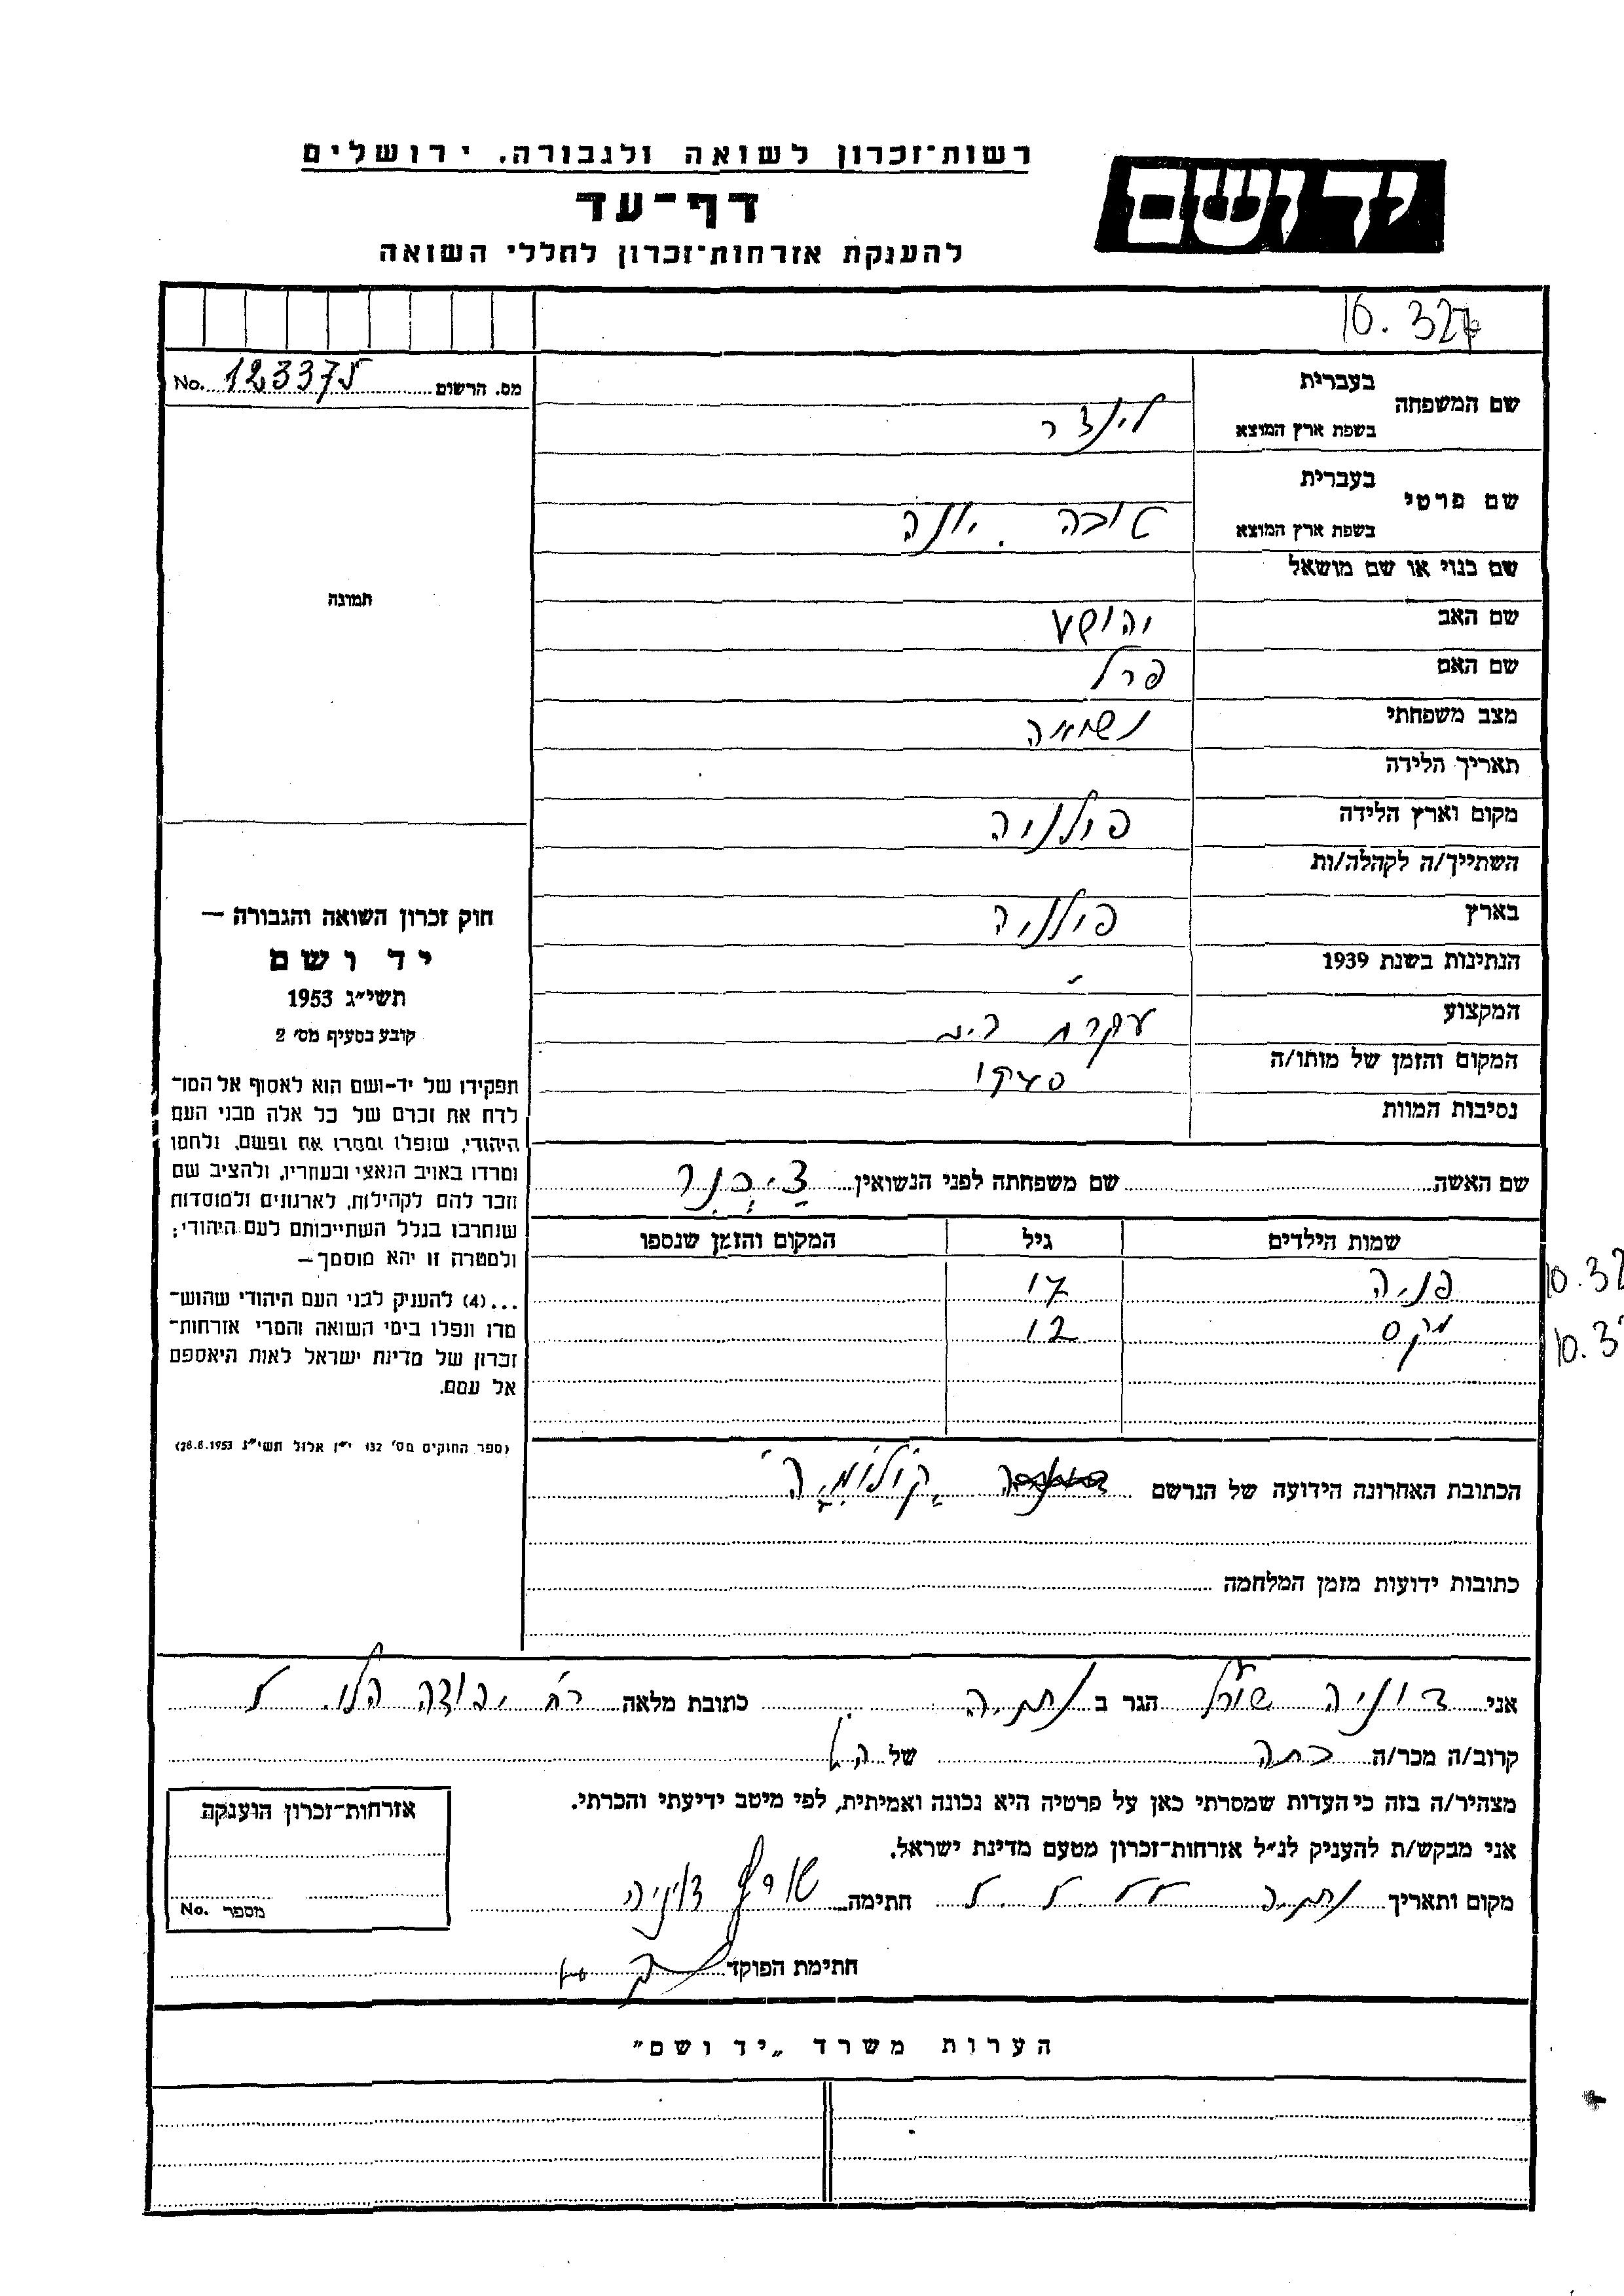 רשות־זכרון לשואה ולגבורה, ירושלים
יד ושם
דף־עד
להענקת אזרחות־זכרון לחללי השואה
10.327
מס. הרשום No. 123375
שם המשפחה
בעברית
בשפת ארץ המוצא
לינדר
שם פרטי
בעברית
בשפת ארץ המוצא
טובה. יונה
שם כנוי או שם מושאל
שם האב יהושע
שם האם פרל
מצב משפחתי נשואה
תאריך הלידה
מקום וארץ הלידה פולניה
השתייך/ה לקהלה/ות
בארץ פולניה
הנתינות בשנת 1939
המקצוע עקרת בית
המקום והזמן של מותו/ה
נסיבות המוות
שם האשה שם משפחתה לפני הנשואין
שמות הילדים גיל המקום והזמן שנספו
פניה 17
מקס 12
10.32
10.3
הכתובת האחרונה הידועה של הנרשם קולומיה
כתובות ידועות מזמן המלחמה
תמונה
חוק זכרון השואה והגבורה —
יד ושם
תשי״ג 1953
קובע בסעיף מס׳ 2
תפקידו של יד-ושם הוא לאסוף אל המו־
לדת את זכרם של כל אלה מבני העם
היהודי, שנפלו ומסרו את נפשם, נלחמו
ומרדו באויב הנאצי ובעוזריו, ולהציב שם
וזכר להם לקהילות, לארגונים ולמוסדות
שנחרבו בגלל השתייכותם לעם היהודי;
ולמטרה זו יהא מוסמך—
...(4) להעניק לבני העם היהודי שהוש־
מדו ונפלו בימי השואה והמרי אזרחות־
זכרון של מדינת ישראל לאות היאספם
אל עמם.
(ספר החוקים מס׳ 132 י״ז אלול תשי״ג 28.8.1953)
אני דוניה הגר ב נתניה כתובת מלאה רח יהודה הלוי
קרוב/ה מכר/ה בתה של הנ"ל
מצהיר/ה בזה כי העדות שמסרתי כאן על פרטיה היא נכונה ואמיתית, לפי מיטב ידיעתי והכרתי.
אני מבקש/ת להעניק לנ״ל אזרחות־זכרון מטעם מדינת ישראל.
מקום ותאריך נתניה חתימה דוניה
חתימת הפוקד
אזרחות־זכרון הוענקה
מספר No.
הערות משרד „יד ושם״